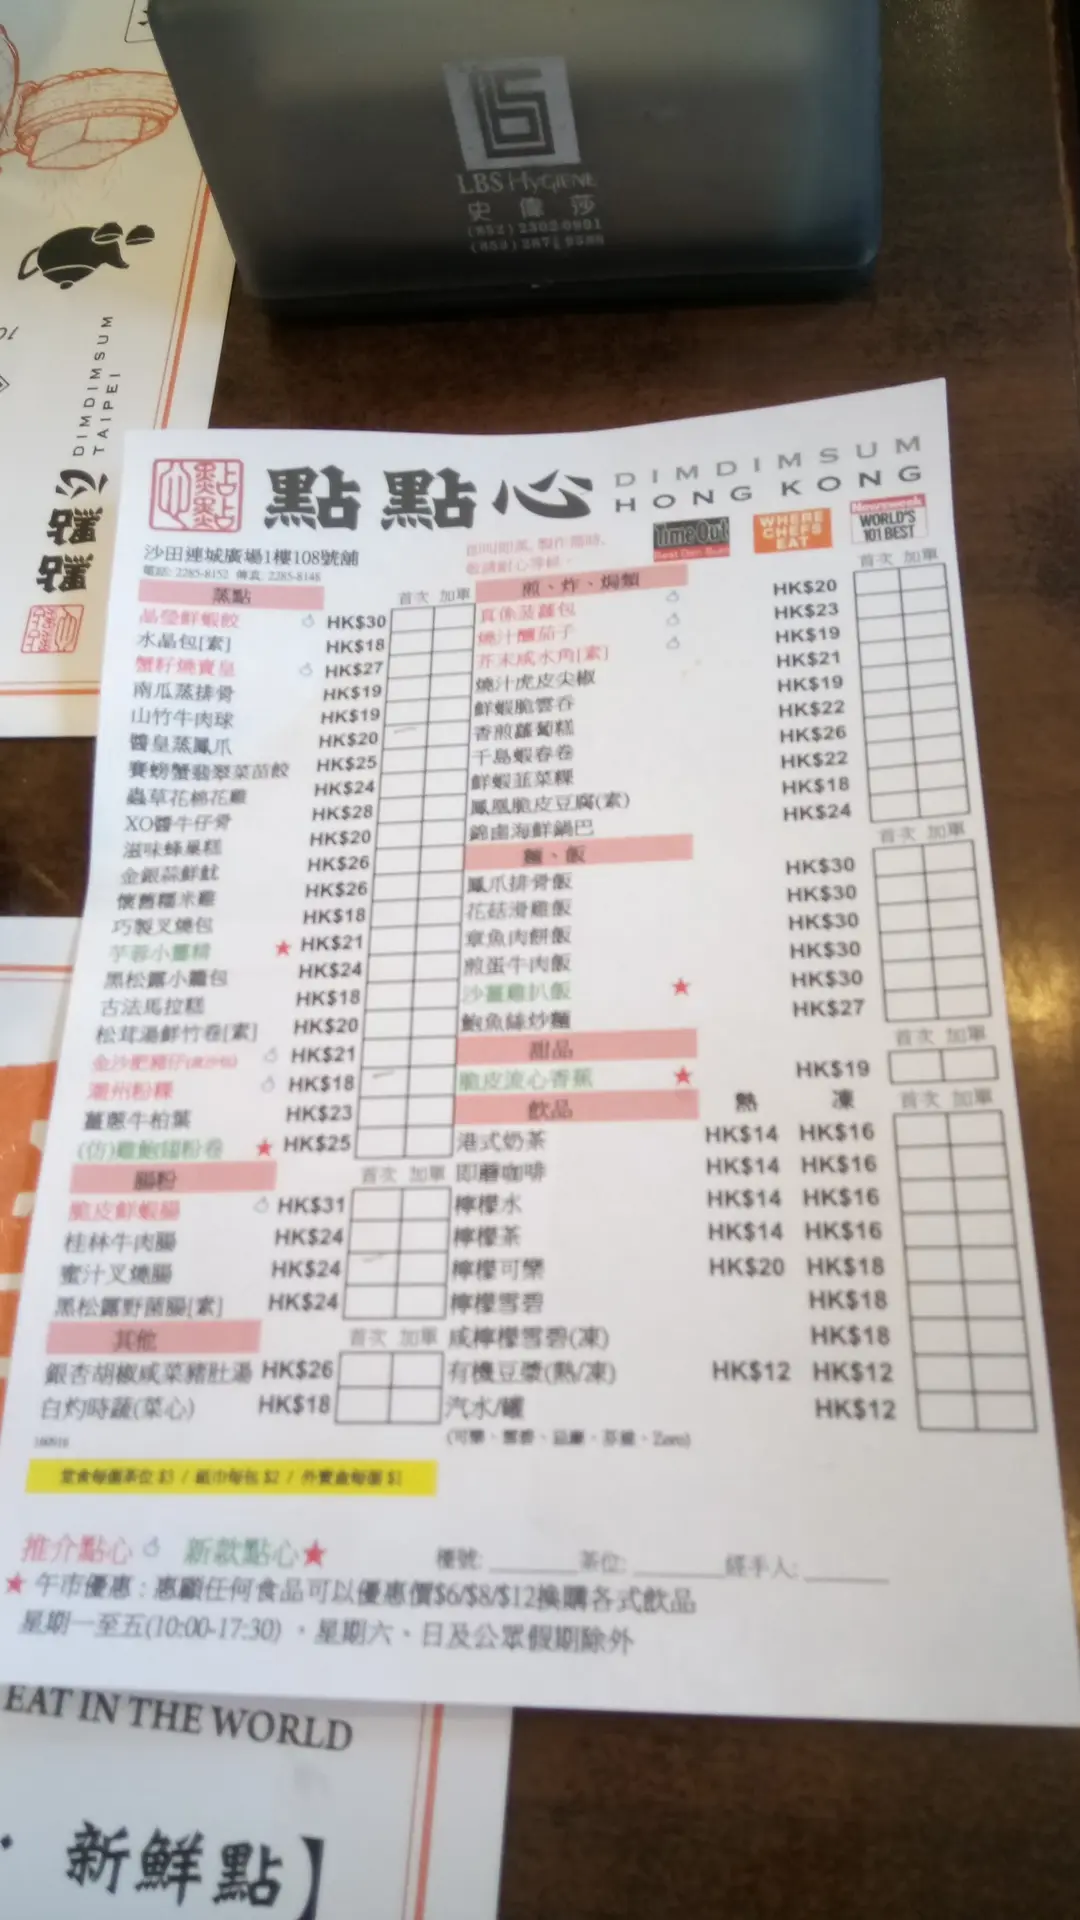 LBS HYGIENE
史偉莎
(852) 2302 0901
DIMDIMSUM
TAIPEI
點點心
點點心 DIMDIMSUM
HONG KONG
Time Out
WHERE CHEFS EAT
Newsweek
WORLD'S 101 BEST
沙田連城廣場1樓108號舖
電話: 2285-8152 傳真: 2285-8148
蒸點 首次 加單
晶瑩鮮蝦餃 HK$30
水晶包[素] HK$18
蟹籽燒賣皇 HK$27
南瓜蒸排骨 HK$19
山竹牛肉球 HK$19
醬皇蒸鳳爪 HK$20
賽螃蟹翡翠菜苗餃 HK$25
蟲草花棉花雞 HK$24
XO醬牛仔骨 HK$28
滋味蜂巢糕 HK$20
金銀蒜鮮魷 HK$26
懷舊糯米雞 HK$26
巧製叉燒包 HK$18
芋蓉小薑精 ★ HK$21
黑松露小籠包 HK$24
古法馬拉糕 HK$18
松茸湯鮮竹卷[素] HK$20
金沙肥豬仔 HK$21
潮州粉粿 HK$18
薑蔥牛柏葉 HK$23
(仿)雞鮑翅粉卷 ★ HK$25
腸粉 首次 加單
脆皮鮮蝦腸 HK$31
桂林牛肉腸 HK$24
蜜汁叉燒腸 HK$24
黑松露野菌腸[素] HK$24
其他 首次 加單
銀杏胡椒咸菜豬肚湯 HK$26
白灼時蔬(菜心) HK$18
160916
煎、炸、焗類 首次 加單
真係菠蘿包 HK$20
燒汁釀茄子 HK$23
芥末咸水角[素] HK$19
燒汁虎皮尖椒 HK$21
鮮蝦脆雲吞 HK$19
香煎蘿蔔糕 HK$22
千島蝦春卷 HK$26
鮮蝦韮菜粿 HK$22
鳳凰脆皮豆腐(素) HK$18
錦鹵海鮮鍋巴 HK$24
麵、飯 首次 加單
鳳爪排骨飯 HK$30
花菇滑雞飯 HK$30
章魚肉餅飯 HK$30
煎蛋牛肉飯 HK$30
沙薑雞扒飯 ★ HK$30
鮑魚絲炒麵 HK$27
甜品 首次 加單
脆皮流心香蕉 ★ HK$19
飲品 熱 凍 首次 加單
港式奶茶 HK$14 HK$16
即磨咖啡 HK$14 HK$16
檸檬水 HK$14 HK$16
檸檬茶 HK$14 HK$16
檸檬可樂 HK$20 HK$18
檸檬雪碧 HK$18
咸檸檬雪碧(凍) HK$18
有機豆漿(熱/凍) HK$12 HK$12
汽水/罐 HK$12
(可樂、雪碧、忌廉、芬達、Zero)
堂食每個茶位 $3 / 紙巾每包 $2 / 外賣盒每個 $1
推介點心 新款點心★ 檯號: 茶位: 經手人:
★ 午市優惠 : 惠顧任何食品可以優惠價$6/$8/$12換購各式飲品
星期一至五(10:00-17:30) , 星期六、日及公眾假期除外
EAT IN THE WORLD
新鮮點】